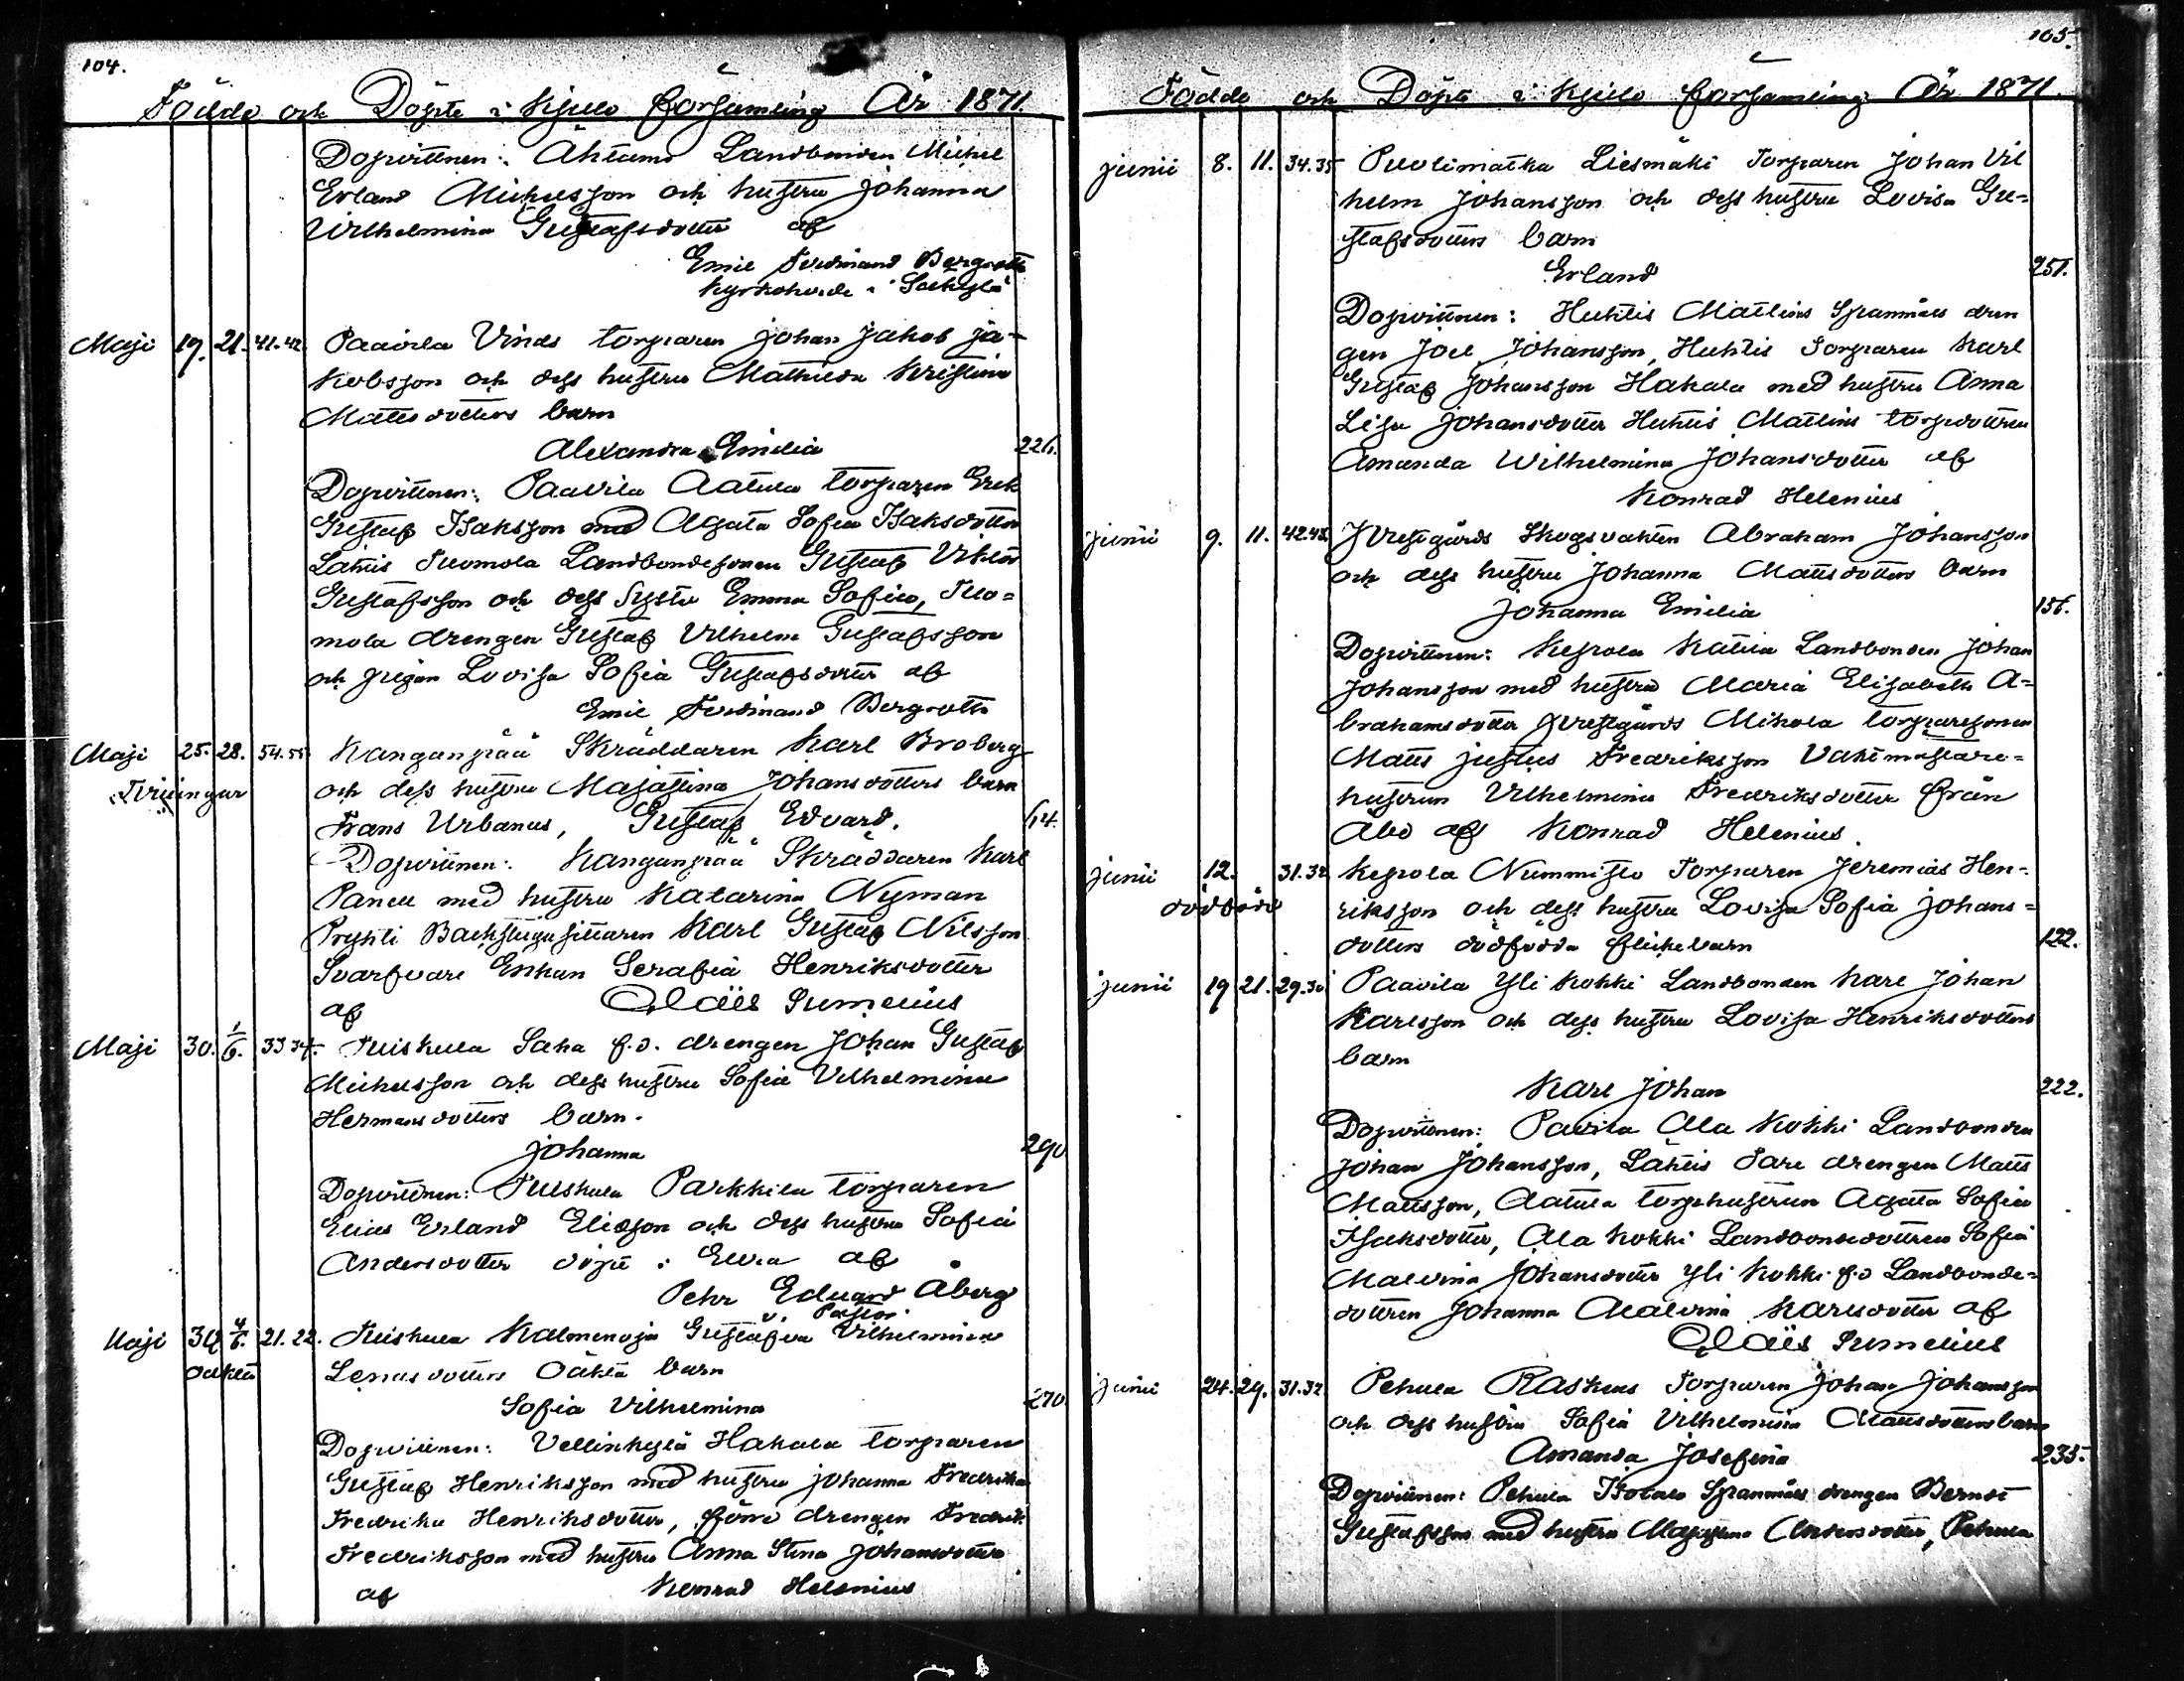 104.
Födde och Döpte i Kjulo församling År 1871.
Dopvittnen: Ähtamo Landbonden Michel
Erland Michelsson och hustru Johanna
Wilhelmina Gustafsdotter af
Emil Ferdinand Bergroth
Kyrkoherde i Säkylä
Maji 19. 21. 41.42. Paavila Vinds torparen Johan Jakob Ja-
kobsson och dess hustru Mathilda Kristina
Mattsdotters barn
Alexandra Emilia 226.
Dopvittnen: Paavila Aatula torparen Erik
Gustaf Isaksson med Agata Sofia Isaksdotter
Lähtis Tuomola Landbondesonen Gustaf Viktor
Gustafsson och dess Syster Emma Sofia, Tuo-
mola drengen Gustaf Vilhelm Gustafsson
och pigan Lovisa Sofia Gustafsdotter af
Emil Ferdinand Bergroth
Maji 25. 28. 54.55 Kanganpää Skräddaren Karl Broberg
Tvillingar och dess hustru Majastina Johansdotters barn
Frans Urbanus, Gustaf Edvard. 14.
Dopvittnen: Kanganpää Skräddaren Karl
Paneu med hustru Katarina Nyman
Backstugusittaren Karl Gustaf Nilsson
Svarfvare Enkan Serafia Henriksdotter
af Claës Sumelius
Maji 30. 1/6. 33 34. Tuiskula Saha f.d. drengen Johan Gustaf
Michelsson och dess hustru Sofia Vilhelmina
Hermansdotters barn.
Johanna 290
Dopvittnen: Tuiskula Parkkila torparen
Elias Erland Eliasson och dess hustru Sofia
Andersdotter döpt i Eura af
Pehr Eduard Åberg
v. Pastor
Maji 30 4/6. 21.22. Tuiskula Kalmenoja Gustafva Vilhelmina
oäkta Lenasdotters oäkta barn
Sofia Vilhelmina 270.
Dopvittnen: Vellinkylä Hakala torparen
Gustaf Henriksson med hustru Johanna Fredrika
Fredrika Henriksdotter, förre drengen Fredrik
Fredriksson med hustru Anna Stina Johansdotter
af Konrad Helenius
105.
Födde och Döpte i Kjulo församling År 1871.
Junii 8. 11. 34.35 Puolimatka Liesmäki Torparen Johan Vil
helm Johansson och dess hustru Lovisa Gu-
stafsdotters barn
Erland 251.
Dopvittnen: Huhtis Mattlins Spanmåls dren
gen Joel Johansson, Huhtis Torparen Karl
Gustaf Johansson Hakala med hustru Anna
Lisa Johansdotter Huhtis Mattlins torpdottren
Amanda Wilhelmina Johansdotter af
Konrad Helenius
Junii 9. 11. 42.43. Prestgårds Skogsvakten Abraham Johansson
och dess hustru Johanna Mattsdotters barn
Johanna Emilia 151.
Dopvittnen: Kepola Kattila Landbonden Johan
Johansson med hustru Maria Elisabeth A-
brahamsdotter Prestgårds Mikola torparesonen
Matts Justus Fredriksson Vaktmästare-
hustrun Vilhelmina Fredriksdotter från
Åbo af Konrad Helenius.
Junii 12. 31.32 Kepola Nummisto Torparen Jeremias Hen-
dödfödd riksson och dess hustru Lovisa Sofia Johans-
dotters dödfödda flickebarn 122.
Junii 19 21. 29.30 Paavila Yli Kokki Landbonden Karl Johan
Karlsson och dess hustru Lovisa Henriksdotters
barn
Karl Johan 222.
Dopvittnen: Pavila Ala Kokki Landbonden
Johan Johansson, Lähtis Pare drengen Matts
Mattsson, Aatula torphustrun Agata Sofia
Isaksdotter, Ala Kokki Landbondedottren Sofia
Malvina Johansdotter Yli Kokki f.d Landbonde-
dottren Johanna Malvina Karlsdotter af
Claës Sumelius
Junii 24. 29. 31.32 Pehula Raskas Torparen Johan Johansson
och dess hustru Sofia Vilhelmina Mattsdotters barn
Amanda Josefina 235.
Dopvittnen: Pehula Isotalo Spanmåls drengen Berndt
Gustafsson med hustru Majastina Andersdotter, Pehula